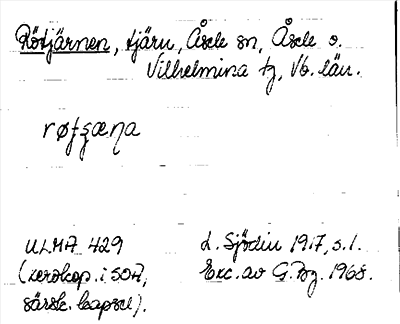 Rötjärnen, tjärn, Åsele sn, Åsele o.
Vilhelmina tg, Vb. län.
ULMA 429
(xerokop. i SOA,
särsk. kapsel).
L. Sjödin 1917, s. 1.
Exc. av G. Bg. 1968.